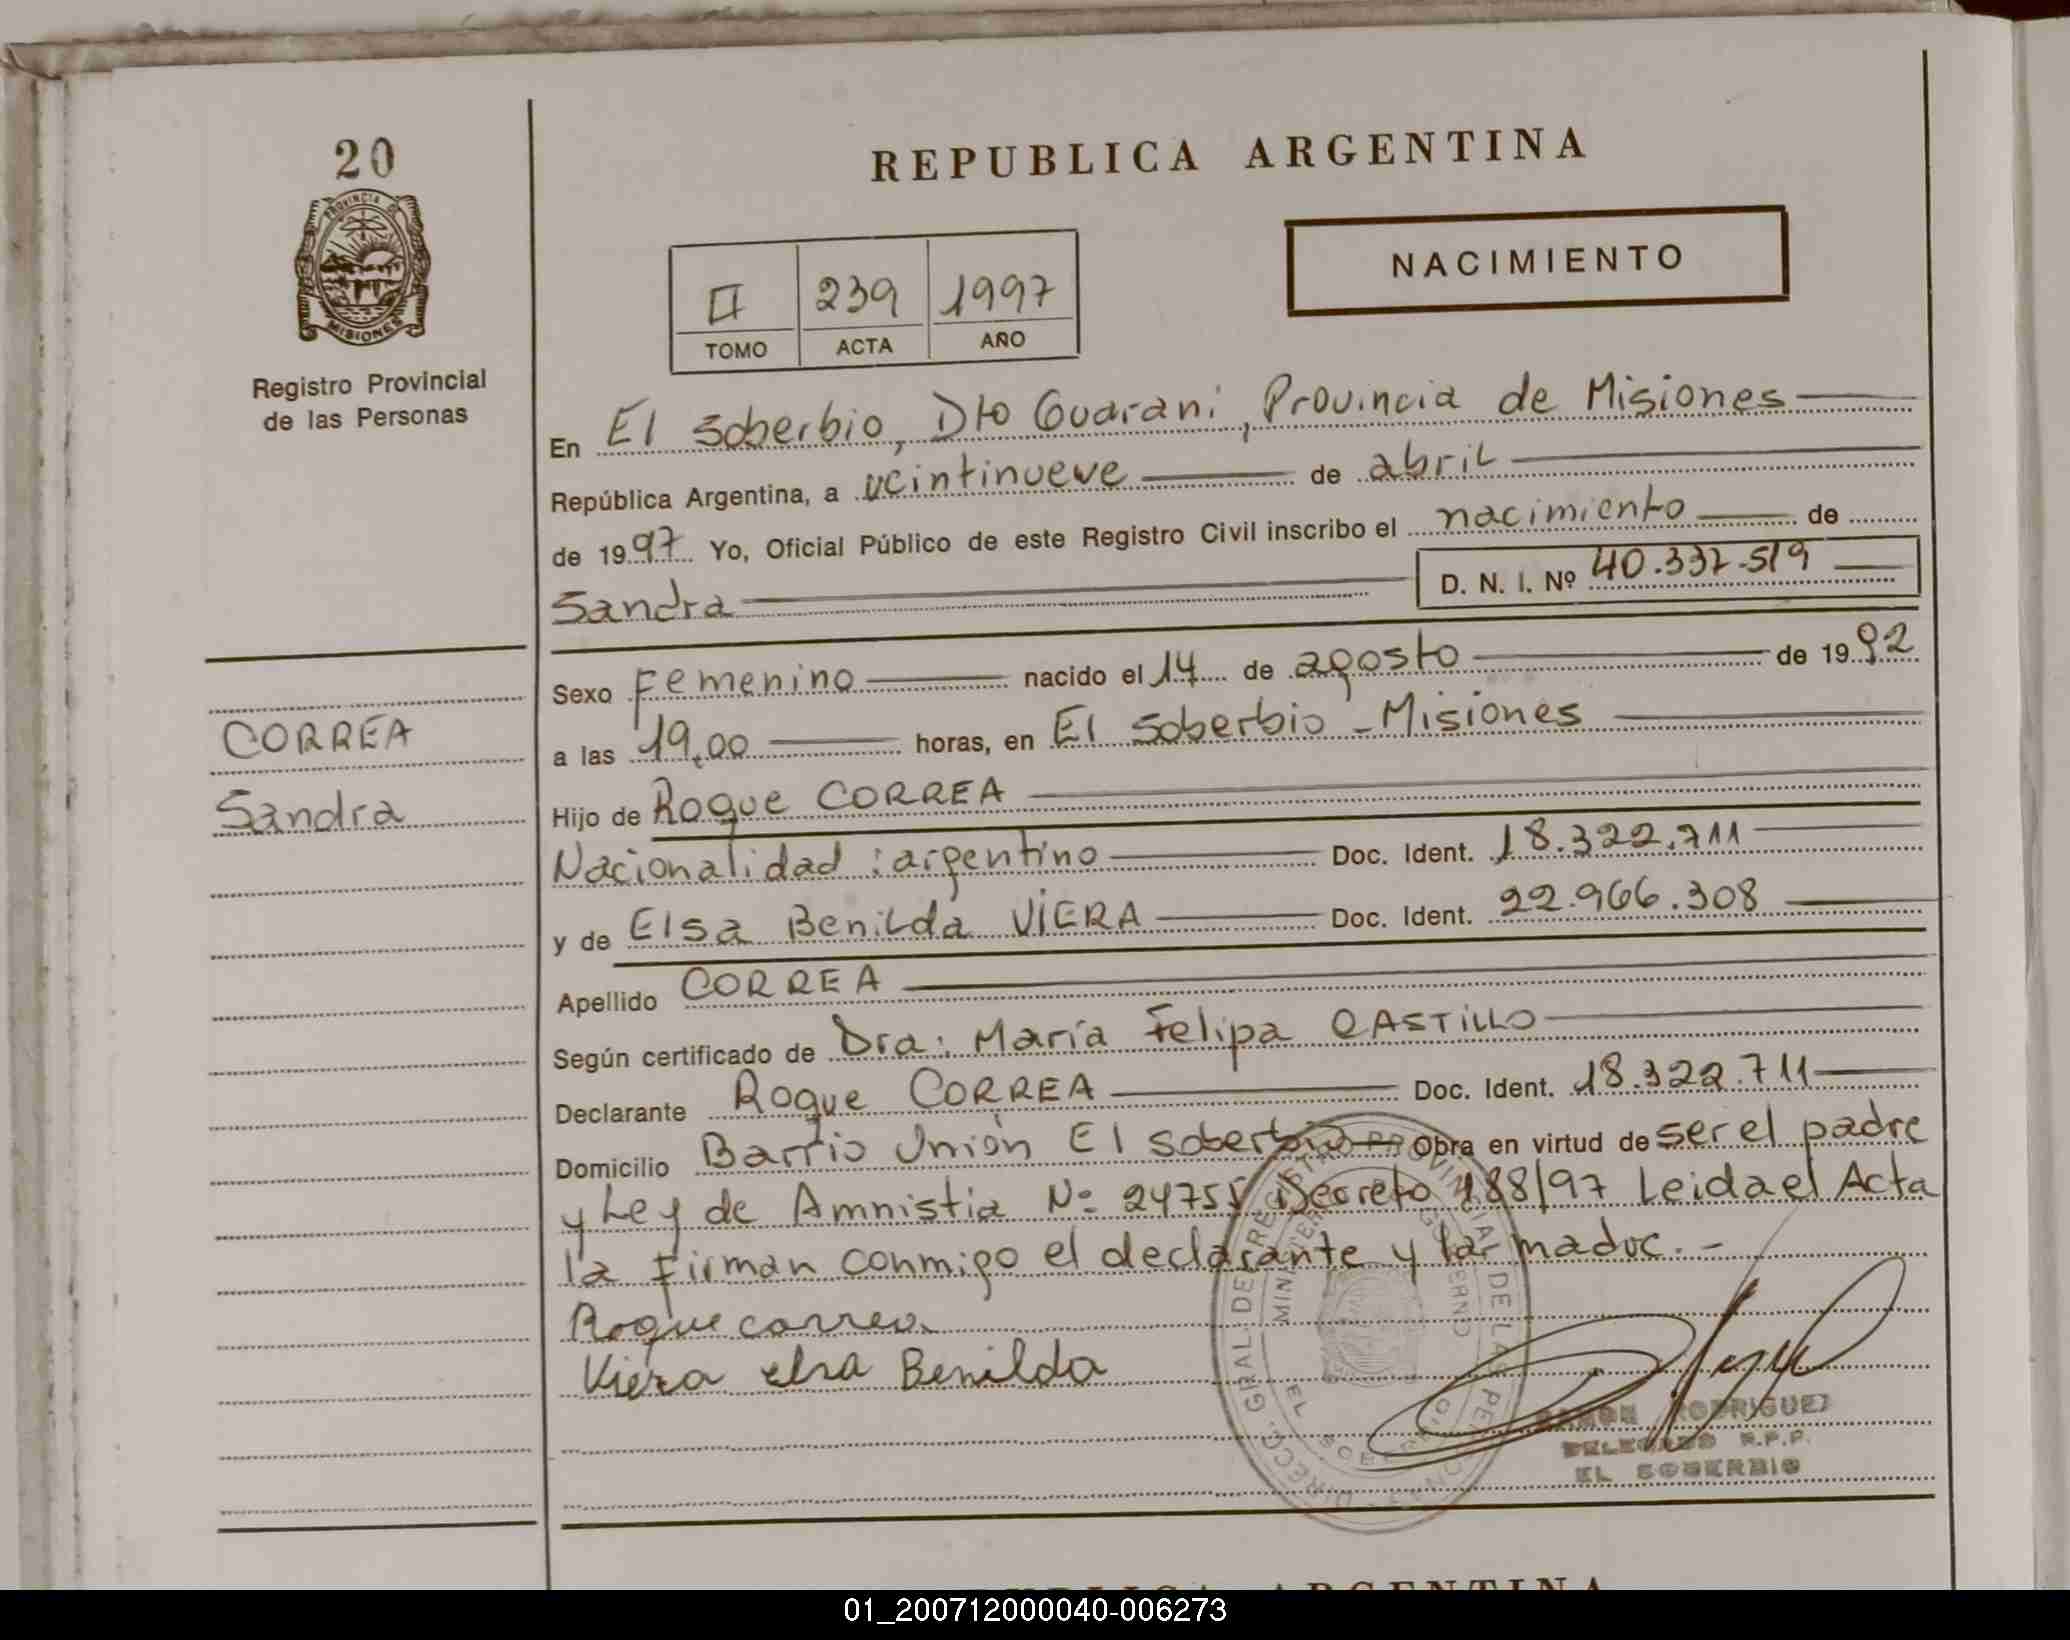 20
PROVINCIA DE
MISIONES
Registro Provincial
de las Personas
CORREA
Sandra
REPUBLICA ARGENTINA
NACIMIENTO
II 239 1997
TOMO ACTA AÑO
En El Soberbio, Dto Guaraní, Provincia de Misiones
República Argentina, a veintinueve de abril
de 1997 Yo, Oficial Público de este Registro Civil inscribo el nacimiento de
Sandra D. N. I. Nº 40.337.519
Sexo Femenino nacido el 14 de agosto de 1992
a las 19,00 horas, en El Soberbio - Misiones
Hijo de Roque CORREA
Nacionalidad: argentino Doc. Ident. 18.322.711
y de Elsa Benilda VIERA Doc. Ident. 22.966.308
Apellido CORREA
Según certificado de Dra: María Felipa CASTILLO
Declarante Roque CORREA Doc. Ident. 18.322.711
Domicilio Barrio Unión El Soberbio Obra en virtud de ser el padre
y Ley de Amnistia Nº 24755 Decreto 188/97 Leida el Acta
la Firman conmigo el declarante y la madre. -
Roque correa
Viera elsa Benilda
RAMON RODRIGUEZ
DELEGADO R.P.P.
EL SOBERBIO
REPUBLICA ARGENTINA
01_200712000040-006273